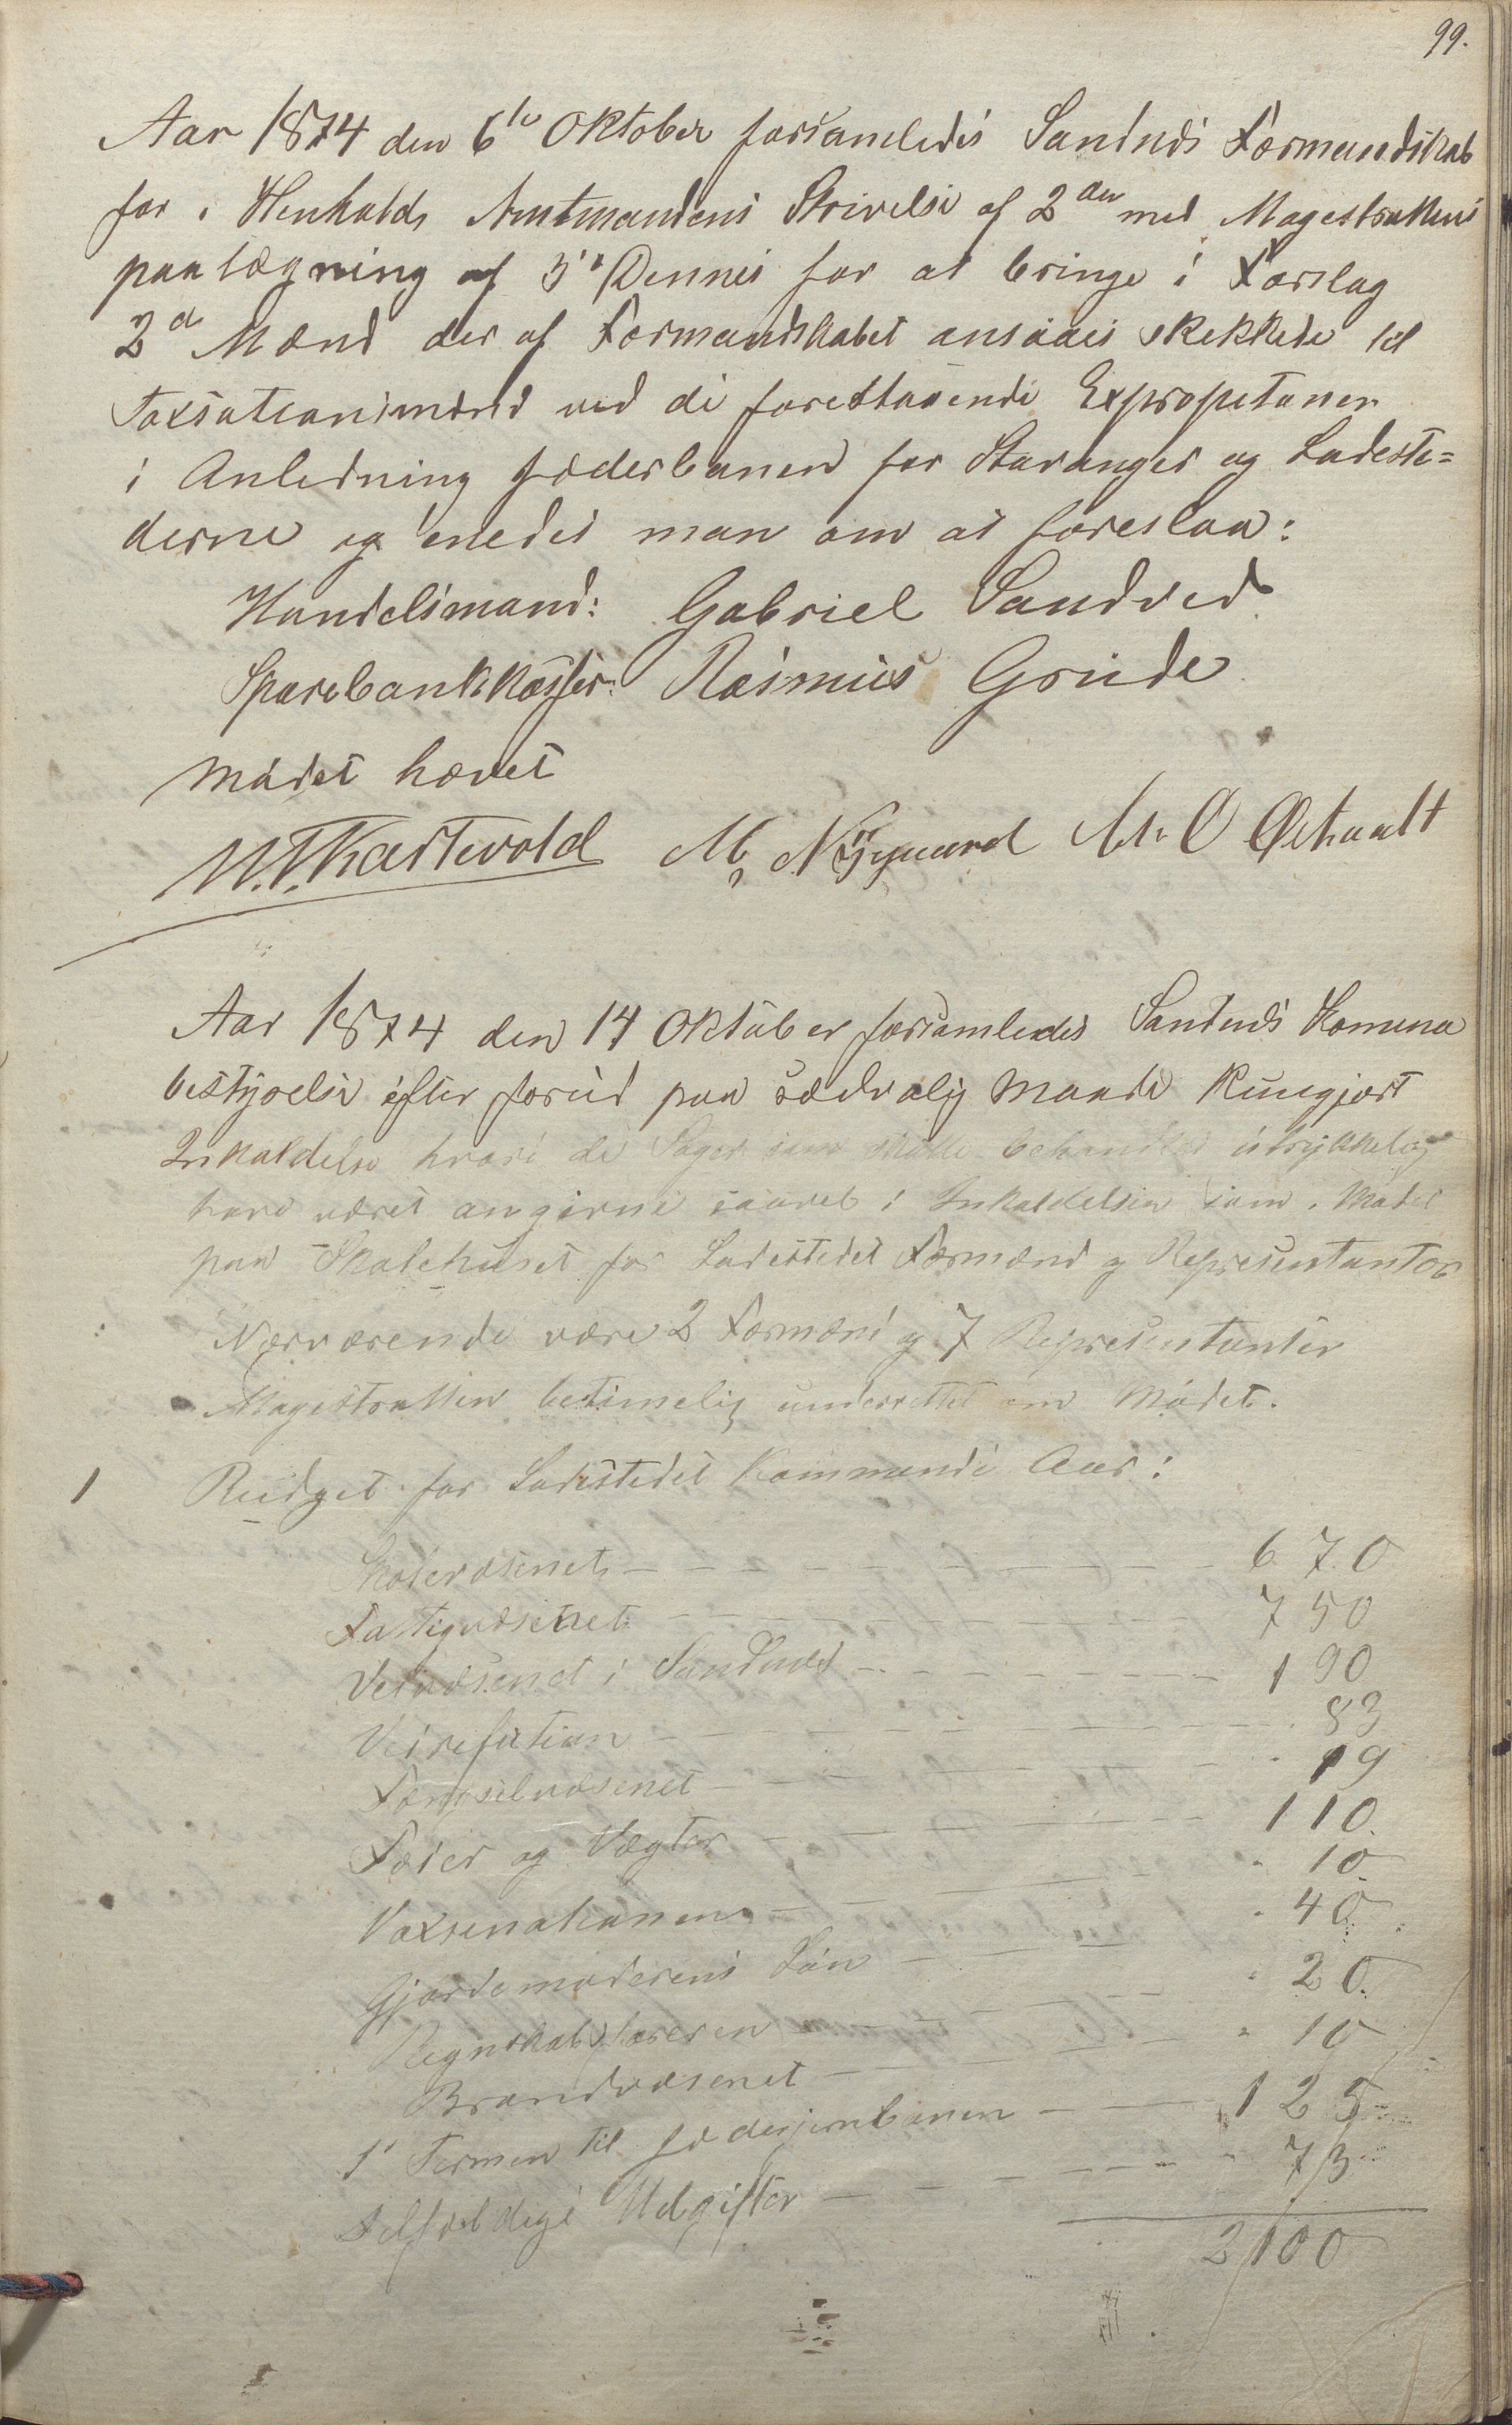 99.
Aar 1874 den 6te Oktober forsamledes Sandnes Formandskab
for i Henhold Amtmandens Skrivelse af 2den med Magestrattens
paategning af 3' Dennes for at bringe i Forslag
2d Mænd der af Formandskabet ansaaes skekkede til
Taxsationsmænd ved de forestaaende Expropetioner
i Anledning Jæderbanen for Stavanger og Ladeste=
derne og enedes man om at foreslaa:
Handelsmand: Gabriel Sandved
Sparebankkasser: Rasmus Grude
Mødet hævet
M. Nygaard
Aar 1874 den 14 Oktober forsamledes Sandnes Komune
bestyrelse efter forud paa sædvalig Maade Kungjort
Inkaldelse hvori de Sager som skulle behandles utrykkelig
have været angivne saavel i Inkaldelsen som i Mødet
paa Skolehuset for Ladestedet Formænd og Represuntanter
Nærværende være 2 Formænd og 7 Represuntanter
Magestratten betimelig underrettet om Mødet.
1 Budget for Ladestedet Kommende Aar:
Skolevæsenet 670
Fattigvæsenet 750
Veivæsenet i Sandnes 190
Veirefution 83
Fængselvæsenet 19
Feier og Vægter 110
Vaxsenationen 10
Gjordemoderens Løn 40
Regnskabsføreren 20
Brandvæsenet 10
1' Termen til Jæderjernbanen 125
Telfældige Udgifter 73
2100